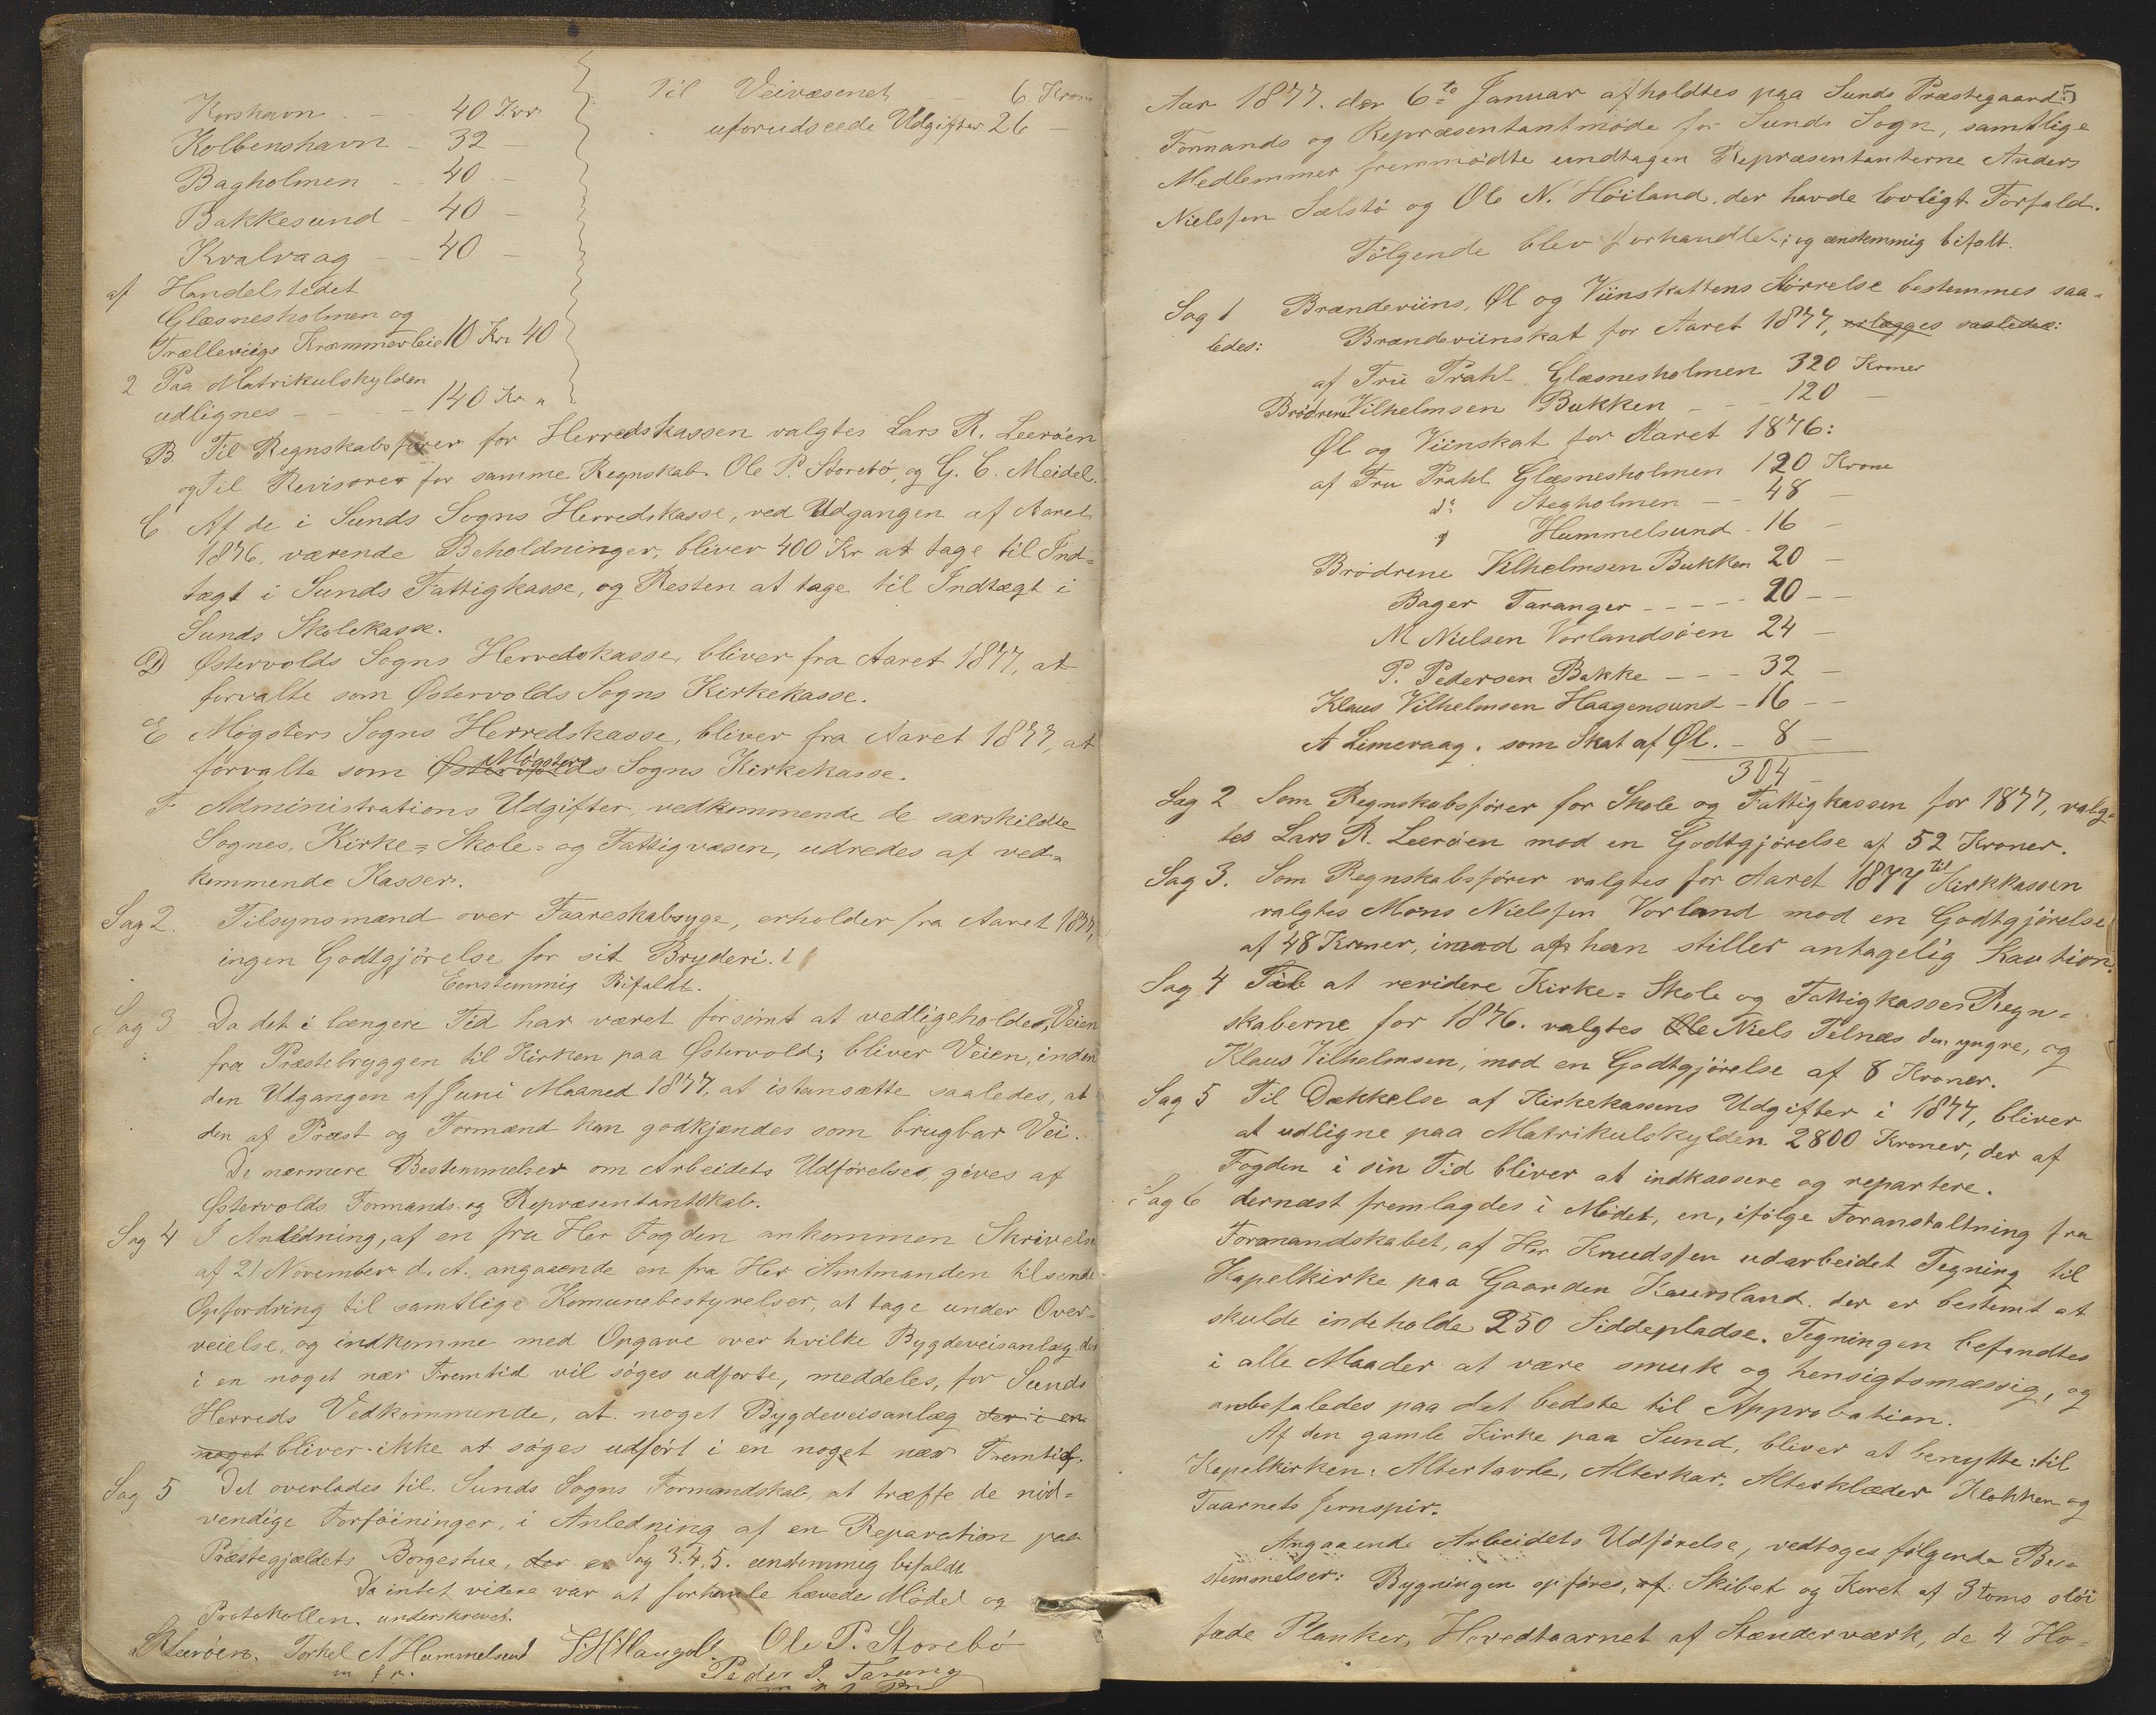 Korshavn - - 40 Kor
Kolbenshavn - 32 -
Bagholmen - - 40 -
Bakkesund - 40 -
Kvalvaag - - 40 -
af Handelstedet
Glæsnesholmen og
Trællevigs Kræmmerleie 10 Kr 40
2 Paa Matrikulskylden
udlignes - - - - 140 Kr "
Til Veivæsenet - - 6 Kroner
uforudseede Udgifter 26 -
B. Til Regnskabsfører for Herredskassen valgtes Lars R. Leerøen
og Til Revisorer for samme Regnskab Ole P. Storebø, og G. C. Meidel.
C Af de i Sunds Sogns Herredskasse, ved Udgangen af Aaret
1876, værende Beholdninger, bliver 400 Kr at tage til Ind-
tægt i Sunds Fattigkasse, og Resten at tage til Indtægt i
Sunds Skolekasse.
D Østervolds Sogns Herredskasse, bliver fra Aaret 1877, at
forvalte som Østervolds Sogns Kirkekasse.
E Møgsters Sogns Herredskasse, bliver fra Aaret 1877, at
forvalte som Østervolds Møgsters Sogns Kirkekasse.
F Administrations Udgifter, vedkommende de særskildte
Sognes, Kirke= Skole= og Fattigvæsen, udredes af ved-
kommende Kasser.
Sag 2. Tilsynsmænd over Faareskabsyge, erholder fra Aaret 1877,
ingen Godtgjørelse for sit Bryderi.
Eenstemmig Bifaldt.
Sag 3 Da det i længere Tid har været forsømt at vedligeholdes, Veien
fra Præstebryggen til Kirken paa Østervold; bliver Veien, inden
den Udgangen af Juni Maaned 1877, at istansætte saaledes, at
den af Præst og Formænd kan godkjændes som brugbar Vei.
De nærmere Bestemmelser om Arbeidets Udførelse, gives af
Østervolds Formands- og Repræsentantskab.
Sag 4 I Anledning, af en fra Her Fogden ankommen Skrivelse
af 21 November d. A., angaaende en fra Her Amtmanden tilsendt
Opfordring til samtlige Komunebestyrelser, at tage under Over-
veielse, og indkomme med Opgave over hvilke Bygdeveisanlæg der
i en noget nær Fremtid vil søges udførte, meddeles, for Sunds
Herreds Vedkommende, at noget Bygdeveisanlæg der i en
noget bliver ikke at søges udført i en noget nær Fremtid.
Sag 5 Det overlades til Sunds Sogns Formandskab, at træffe de nød-
vendige Forføininger, i Anledning af en Reparation paa
Præstegjældets Borgestue, der er Sag 3.4.5. eenstemmig bifaldt
Da intet videre var at forhandle hævedes Mødet og
Protokollen underskrevet.
LRLeerøen. Torkel A Hummelsund Ole P. Storebø
m f P.
Peder P. Tarang
Aar 1877. den 6te Januar afholdtes paa Sunds Præstegaard 5
Formands og Repræsentantmøde for Sunds Sogn, samtlige
Medlemmer fremmødte undtagen Repræsentanterne Anders
Nielsen Sælstø og Ole N. Høiland, der havde lovligt Forfald.
Følgende blev forhandlet; og eenstemmig bifalt.
Sag 1 Brændeviins, Øl og Viinskattens Størrelse bestemmes saa-
ledes: Brændeviinskat for Aaret 1877, erlægges saaledes:
af Frü Prahl Glæsnesholmen 320 Kroner
Brødrene Vilhelmsen Bukken - - - 120 -
Øl og Viinskat for Aaret 1876:
af Fru Prahl Glæsnesholmen 120 Krone
do Stegholmen - - 48 -
" Hummelsund - 16 -
Brødrene Vilhelmsen Bukken 20 -
Bager Taranger - - - - - 20 - -
M Nielsen Vorlandsøen 24 -
P. Pedersen Bakke - - - 32 -
Klaus Vilhelmsen Haagensund - 16 - -
A Limevaag, som Skat af Øl. - 8 -
304 -
Sag 2 Som Regnskabsfører for Skole og Fattigkassen for 1877, valg-
tes Lars R. Leerøen mod en Godtgjørelse af 52 Kroner.
Sag 3. Som Regnskabsfører valgtes for Aaret 1877 til Kirkkassen
valgtes Mons Nielsen Vorland mod en Godtgjørelse
af 48 Kroner, imod at han stiller antagelig Kaution.
Sag 4 Til at revidere Kirke= Skole og Fattigkasses Regn-
skaberne for 1876. valgtes Ole Niels Telnæs den yngre, og
Klaus Vilhelmsen, mod en Godtgjørelse af 8 Kroner.
Sag 5 Til Dækkelse af Kirkekassens Udgifter i 1877, bliver
at udligne paa Matrikulskylden 2800 Kroner, der af
Fogden i sin Tid bliver at indkassere og repartere.
Sag 6 dernæst fremlagdes i Mødet, en, ifølge Foranstaltning fra
Formandskabet, af Her Knudsen udarbeidet Tegning til
Kapelkirke paa Gaarden Kausland, der er bestemt at
skulde indeholde 250 Siddepladse. Tegningen befandtes
i alle Maader at være smuk og hensigtsmæssig, og
anbefaledes paa det bedste til Approbation.
Af den gamle Kirke paa Sund, bliver at benytte til
Kapelkirken: Altertavle, Alterkar, Alterklæder Klokken og
Taarnets Jernspir.
Angaaende Arbeidets Udførelse, vedtoges følgende Be-
stemmelser: Bygningen opføres, af Skibet og Koret af 3 Toms sløi
fede Planker, Hovedtaarnet af Stænderværk, de 4 Ho-